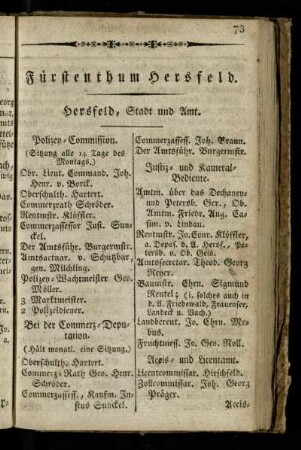 73
Fürstenthum Hersfeld.
Hersfeld, Stadt und Amt.
Polizey-Commission.
(Sitzung alle 14 Tage des
Montags.)
Obr. Lieut. Command. Joh.
Henr. v. Borck.
Oberschulth. Hartert.
Commerzrath Schröder.
Rentmstr. Klöffler.
Commerzassessor Just. Sun-
ckel.
Der Amtsführ. Burgermstr.
Amtsactuar. v. Schutzbar
gen. Milchling.
Polizey-Wachtmeister Geo.
Möller.
3 Marktmeister.
2 Polizeidiener.
Bei der Commerz-Depu-
tation.
(Hält monatl. eine Sitzung.)
Oberschulth. Hartert.
Commerz-Rath Geo. Henr.
Schröder.
Commerzassess., Kaufm. Ju-
stus Sunckel.
Commerzassess. Joh. Braun.
Der Amtsführ. Burgermstr.
Justiz- und Kameral-
Bediente.
Amtm. über das Dechaney-
und Petersb. Ger., Ob.
Amtm. Friedr. Aug. Ca-
sim. v. Lindau.
Rentmstr. Jo. Conr. Klöffler,
a. Depos. d. A. Hersf., Pe-
tersb. u. Ob. Geis.
Amtssecretar. Theod. Georg
Reyer.
Baumstr. Chrn. Sigmund
Reutel; (i. solches auch in
d. A. Friedewald, Frauensee,
Landeck u. Vach.)
Landbereut. Jo. Chrn. Me-
bus.
Fruchtmess. Jo. Geo. Noll.
Accis- und Licentamt.
Licentcommissar. Hirschfeld.
Zollcommissar. Joh. Georg
Präger.
Accis-